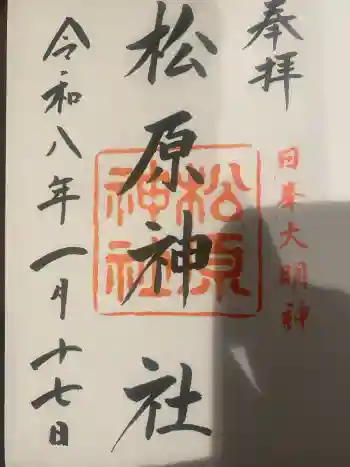 奉拝
日峯大明神
松原神社
松原
神社
令和八年一月十七日